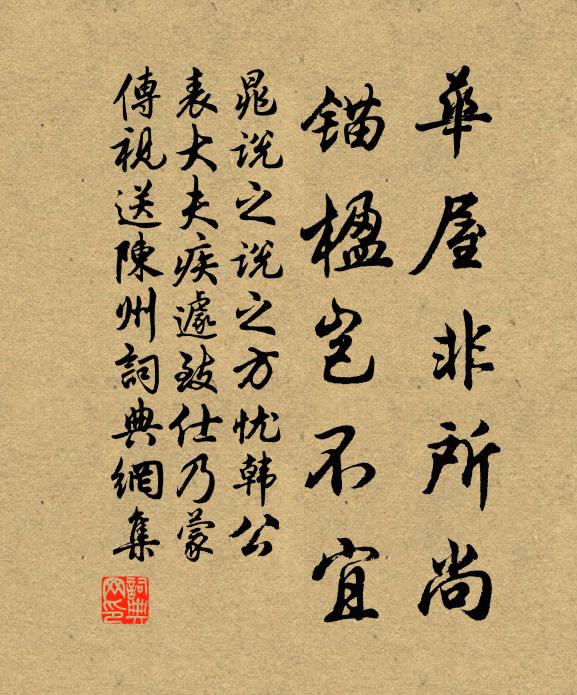 華屋非所尚
錨楹岂不宜
晁说之说之方忧韩公
表大夫疾遽致仕乃蒙
傳視送陳州詞典網集
詞典
网印